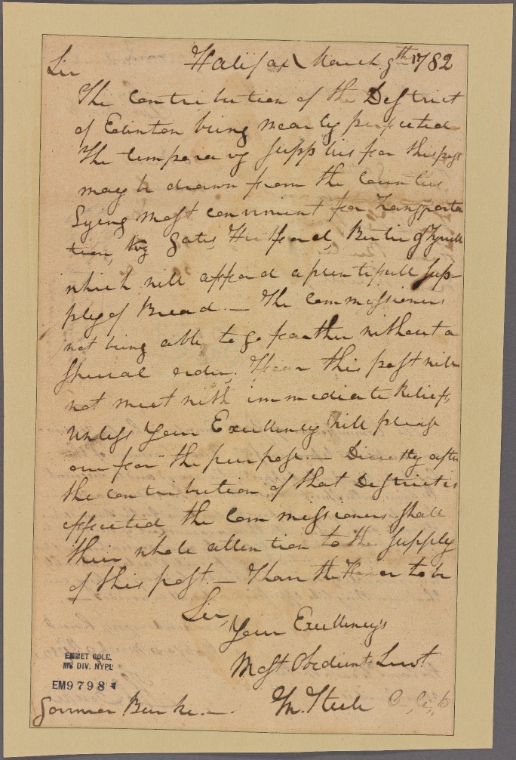 Halifax March 9th 1782
Sir
The Contribution of the District
of Edinton being nearly perfected
The temporary Supplies for this post
may be drawn from the Counties
Lying most convenient for Transporta
tion, Gates Hertford, Bertie & Tyrell
which will afford a plentifull Sup-
ply of Bread.— The Commissioners
not being able to go farther without a
Special order. I fear this post will
not meet with immediate Relief,
unless Your Excellency will please
for the purpose.— Directly after
the contribution of that District is
effected the Commissioners shall
their whole attention to the Supply
of this post.— I have the Honor to be
Sir,
Your Excellency's
Most Obedient Servt
M. Steele
Governor Burke.—
EMMET COLL.
MS DIV. NYPL
EM9798